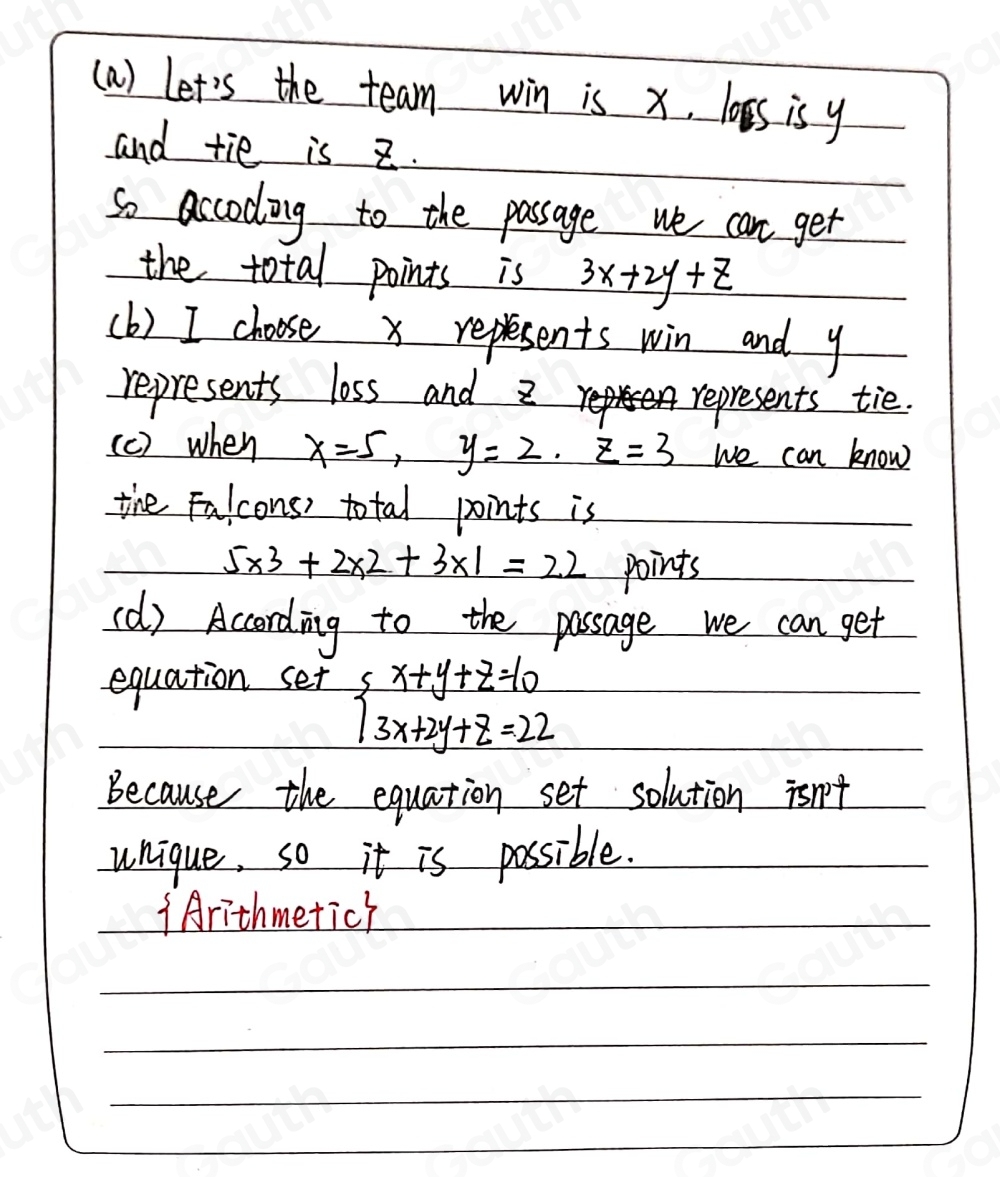 (a) Let's the team win is x. loss is y
and tie is z.
So accoding to the passage we can get
the total points is 3x+2y+z
(b) I choose x represents win and y
represents loss and z represen represents tie.
(c) when x=5, y=2. z=3 we can know
the Falcons' total points is
5×3+2×2+3×1=22 points
(d) According to the passage we can get
equation set { x+y+z=10
3x+2y+z=22
Because the equation set solution isn't
unique, so it is possible.
{Arithmetic}